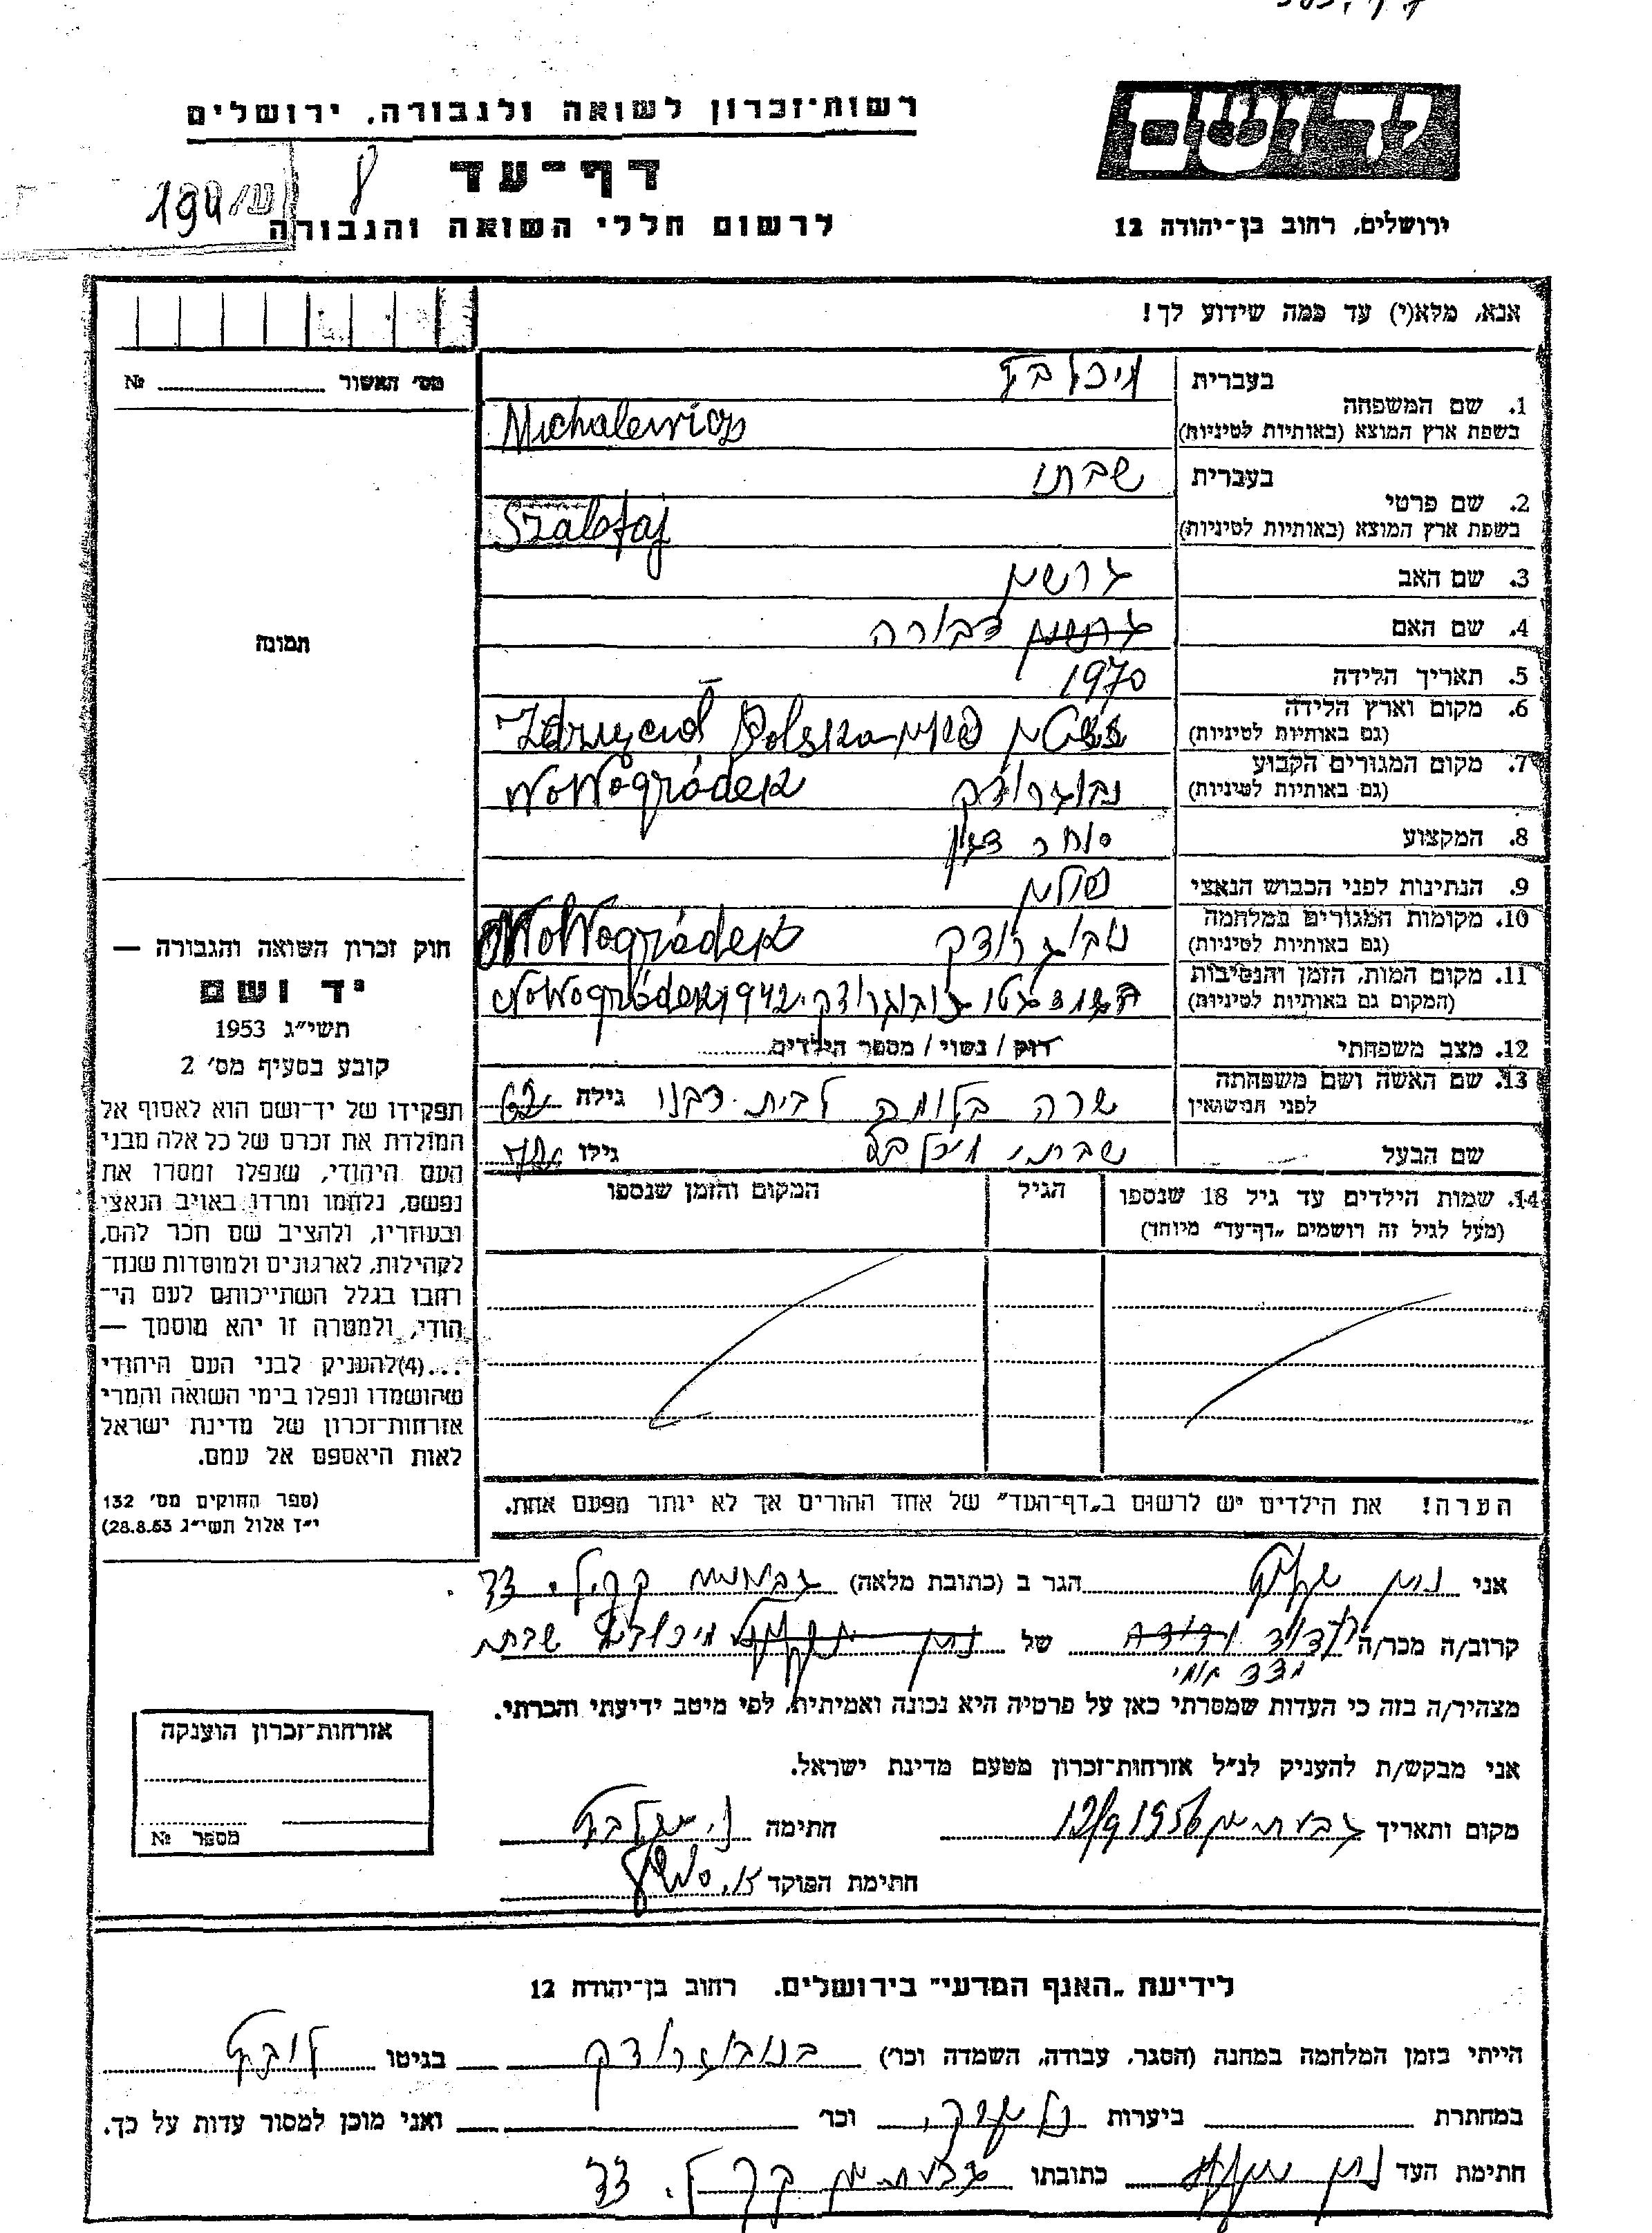 רשות־זכרון לשואה ולגבורה, ירושלים
יד ושם
דף־עד
194/ש 8
לרשום חללי השואה והגבורה
ירושלים, רחוב בן־יהודה 12
אנא, מלא(י) עד כמה שידוע לך!
מס' האשור №
תמונה
חוק זכרון השואה והגבורה —
יד ושם
תשי״ג 1953
קובע בסעיף מס' 2
תפקידו של יד־ושם הוא לאסוף אל
המולדת את זכרם של כל אלה מבני
העם היהודי, שנפלו ומסרו את
נפשם, נלחמו ומרדו באויב הנאצי
ובעוזריו, ולהציב שם וזכר להם,
לקהילות, לארגונים ולמוסדות שנח־
רבו בגלל השתייכותם לעם הי־
הודי, ולמטרה זו יהא מוסמך —
...(4) להעניק לבני העם היהודי
שהושמדו ונפלו בימי השואה והמרי
אזרחות־זכרון של מדינת ישראל
לאות היאספם אל עמם.
(ספר החוקים מס' 132
י״ז אלול תשי״ג 28.8.53)
1. שם המשפחה בעברית
בשפת ארץ המוצא (באותיות לטיניות) Michalewicz
2. שם פרטי בעברית שבתי
בשפת ארץ המוצא (באותיות לטיניות)
3. שם האב גרשון
4. שם האם דבורה
5. תאריך הלידה 1970
6. מקום וארץ הלידה
(גם באותיות לטיניות) Polska
7. מקום המגורים הקבוע נבוגרודק
(גם באותיות לטיניות) Nowogródek
8. המקצוע סוחר
9. הנתינות לפני הכבוש הנאצי פולין
10. מקומות המגורים במלחמה נבוגרודק
(גם באותיות לטיניות) Nowogródek
11. מקום המות, הזמן והנסיבות 1942
(המקום גם באותיות לטיניות) Nowogródek
12. מצב משפחתי רווק / נשוי / מספר הילדים
13. שם האשה ושם משפחתה שרה בלומה לבית גילה
לפני הנישואין
שם הבעל שבתי גילו
14. שמות הילדים עד גיל 18 שנספו הגיל המקום והזמן שנספו
(מעל לגיל זה רושמים „דף־עד״ מיוחד)
הערה! את הילדים יש לרשום ב„דף־העד״ של אחד ההורים אך לא יותר מפעם אחת.
אני הגר ב (כתובת מלאה) גבעתיים
קרוב/ה מכר/ה של שבתי
מצהיר/ה בזה כי העדות שמסרתי כאן על פרטיה היא נכונה ואמיתית, לפי מיטב ידיעתי והכרתי.
אני מבקש/ת להעניק לנ״ל אזרחות־זכרון מטעם מדינת ישראל.
מקום ותאריך גבעתיים 12/9 1956 חתימה
חתימת הפוקד
אזרחות־זכרון הוענקה
מספר №
לידיעת „האגף המדעי״ בירושלים. רחוב בן־יהודה 12
הייתי בזמן המלחמה במחנה (הסגר, עבודה, השמדה וכו') בנובוגרודק בגיטו
במחתרת ביערות וכו' ואני מוכן למסור עדות על כך.
חתימת העד כתובתו גבעתיים